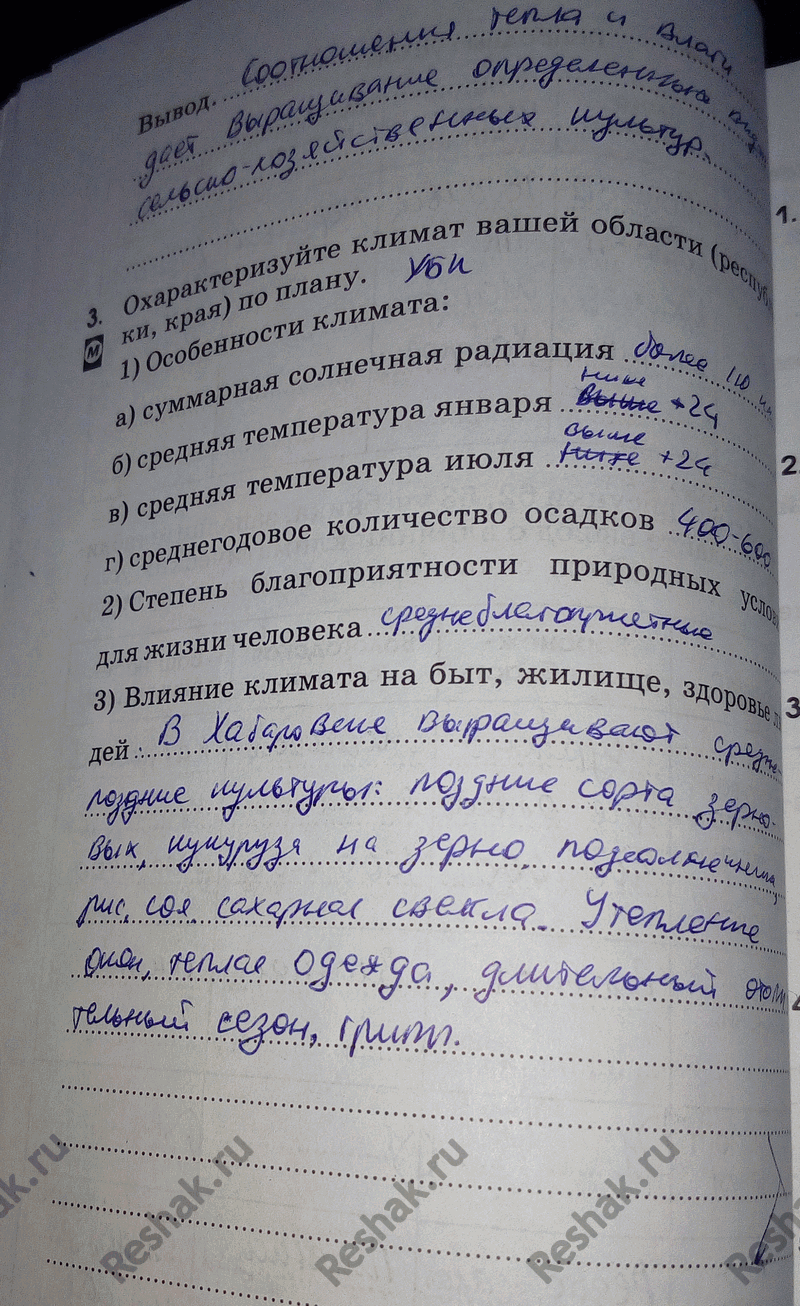 Вывод. Соотношения тепла и влаги
дает выращивание определенных
сельско-хозяйственных культур.
3. Охарактеризуйте климат вашей области (респуб
ки, края) по плану.
М
1) Особенности климата:
а) суммарная солнечная радиация более 110
ниже
б) средняя температура января выше +24
выше
в) средняя температура июля ниже +24
г) среднегодовое количество осадков 400-600
2) Степень благоприятности природных услов
для жизни человека среднеблагоприятные
3) Влияние климата на быт, жилище, здоровье л
дей: В Хабаровске выращивают средне-
поздние культуры: поздние сорта зерно-
вых, кукуруза на зерно, подсолнечника,
рис, соя, сахарная свекла. Утепление
окон, теплая одежда, длительный отопи
тельный сезон, грипп.
1.
2.
3
4
Reshak.ru
Reshak.ru
Reshak.ru
Reshak.ru
Reshak.ru